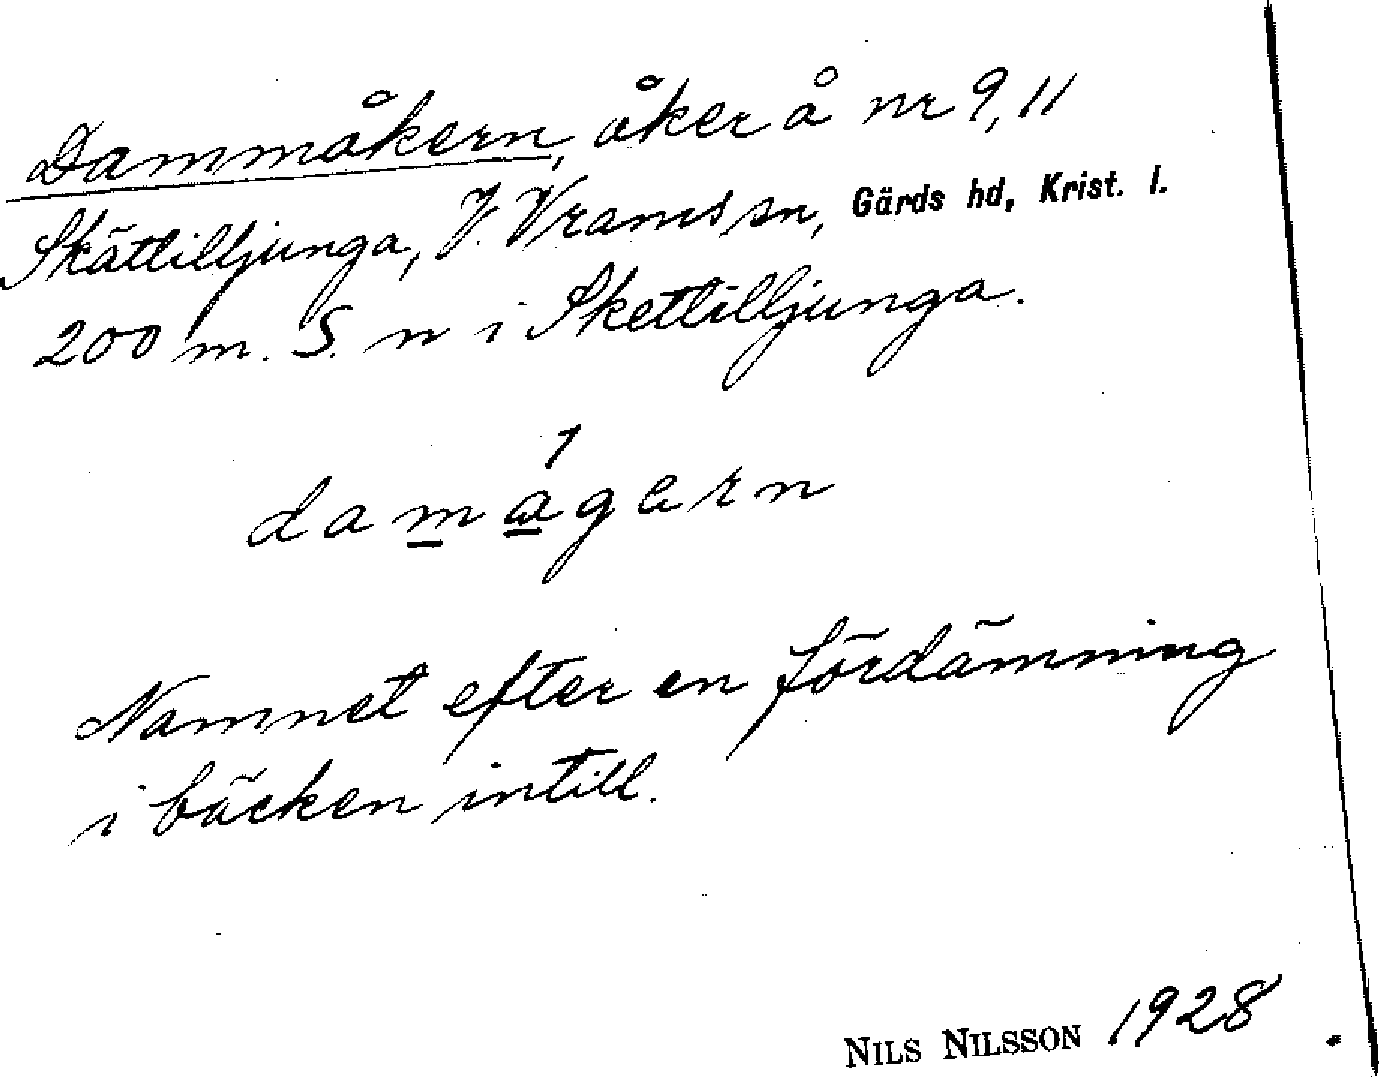 Dammåkern, åker å nr 9, 11
Skättilljunga, V. Vrams sn, Gärds hd, Krist. l.
200 m. S. n i Skettilljunga.
damagarn
Namnet efter en fördämning
i bäcken intill.
NILS NILSSON 1928